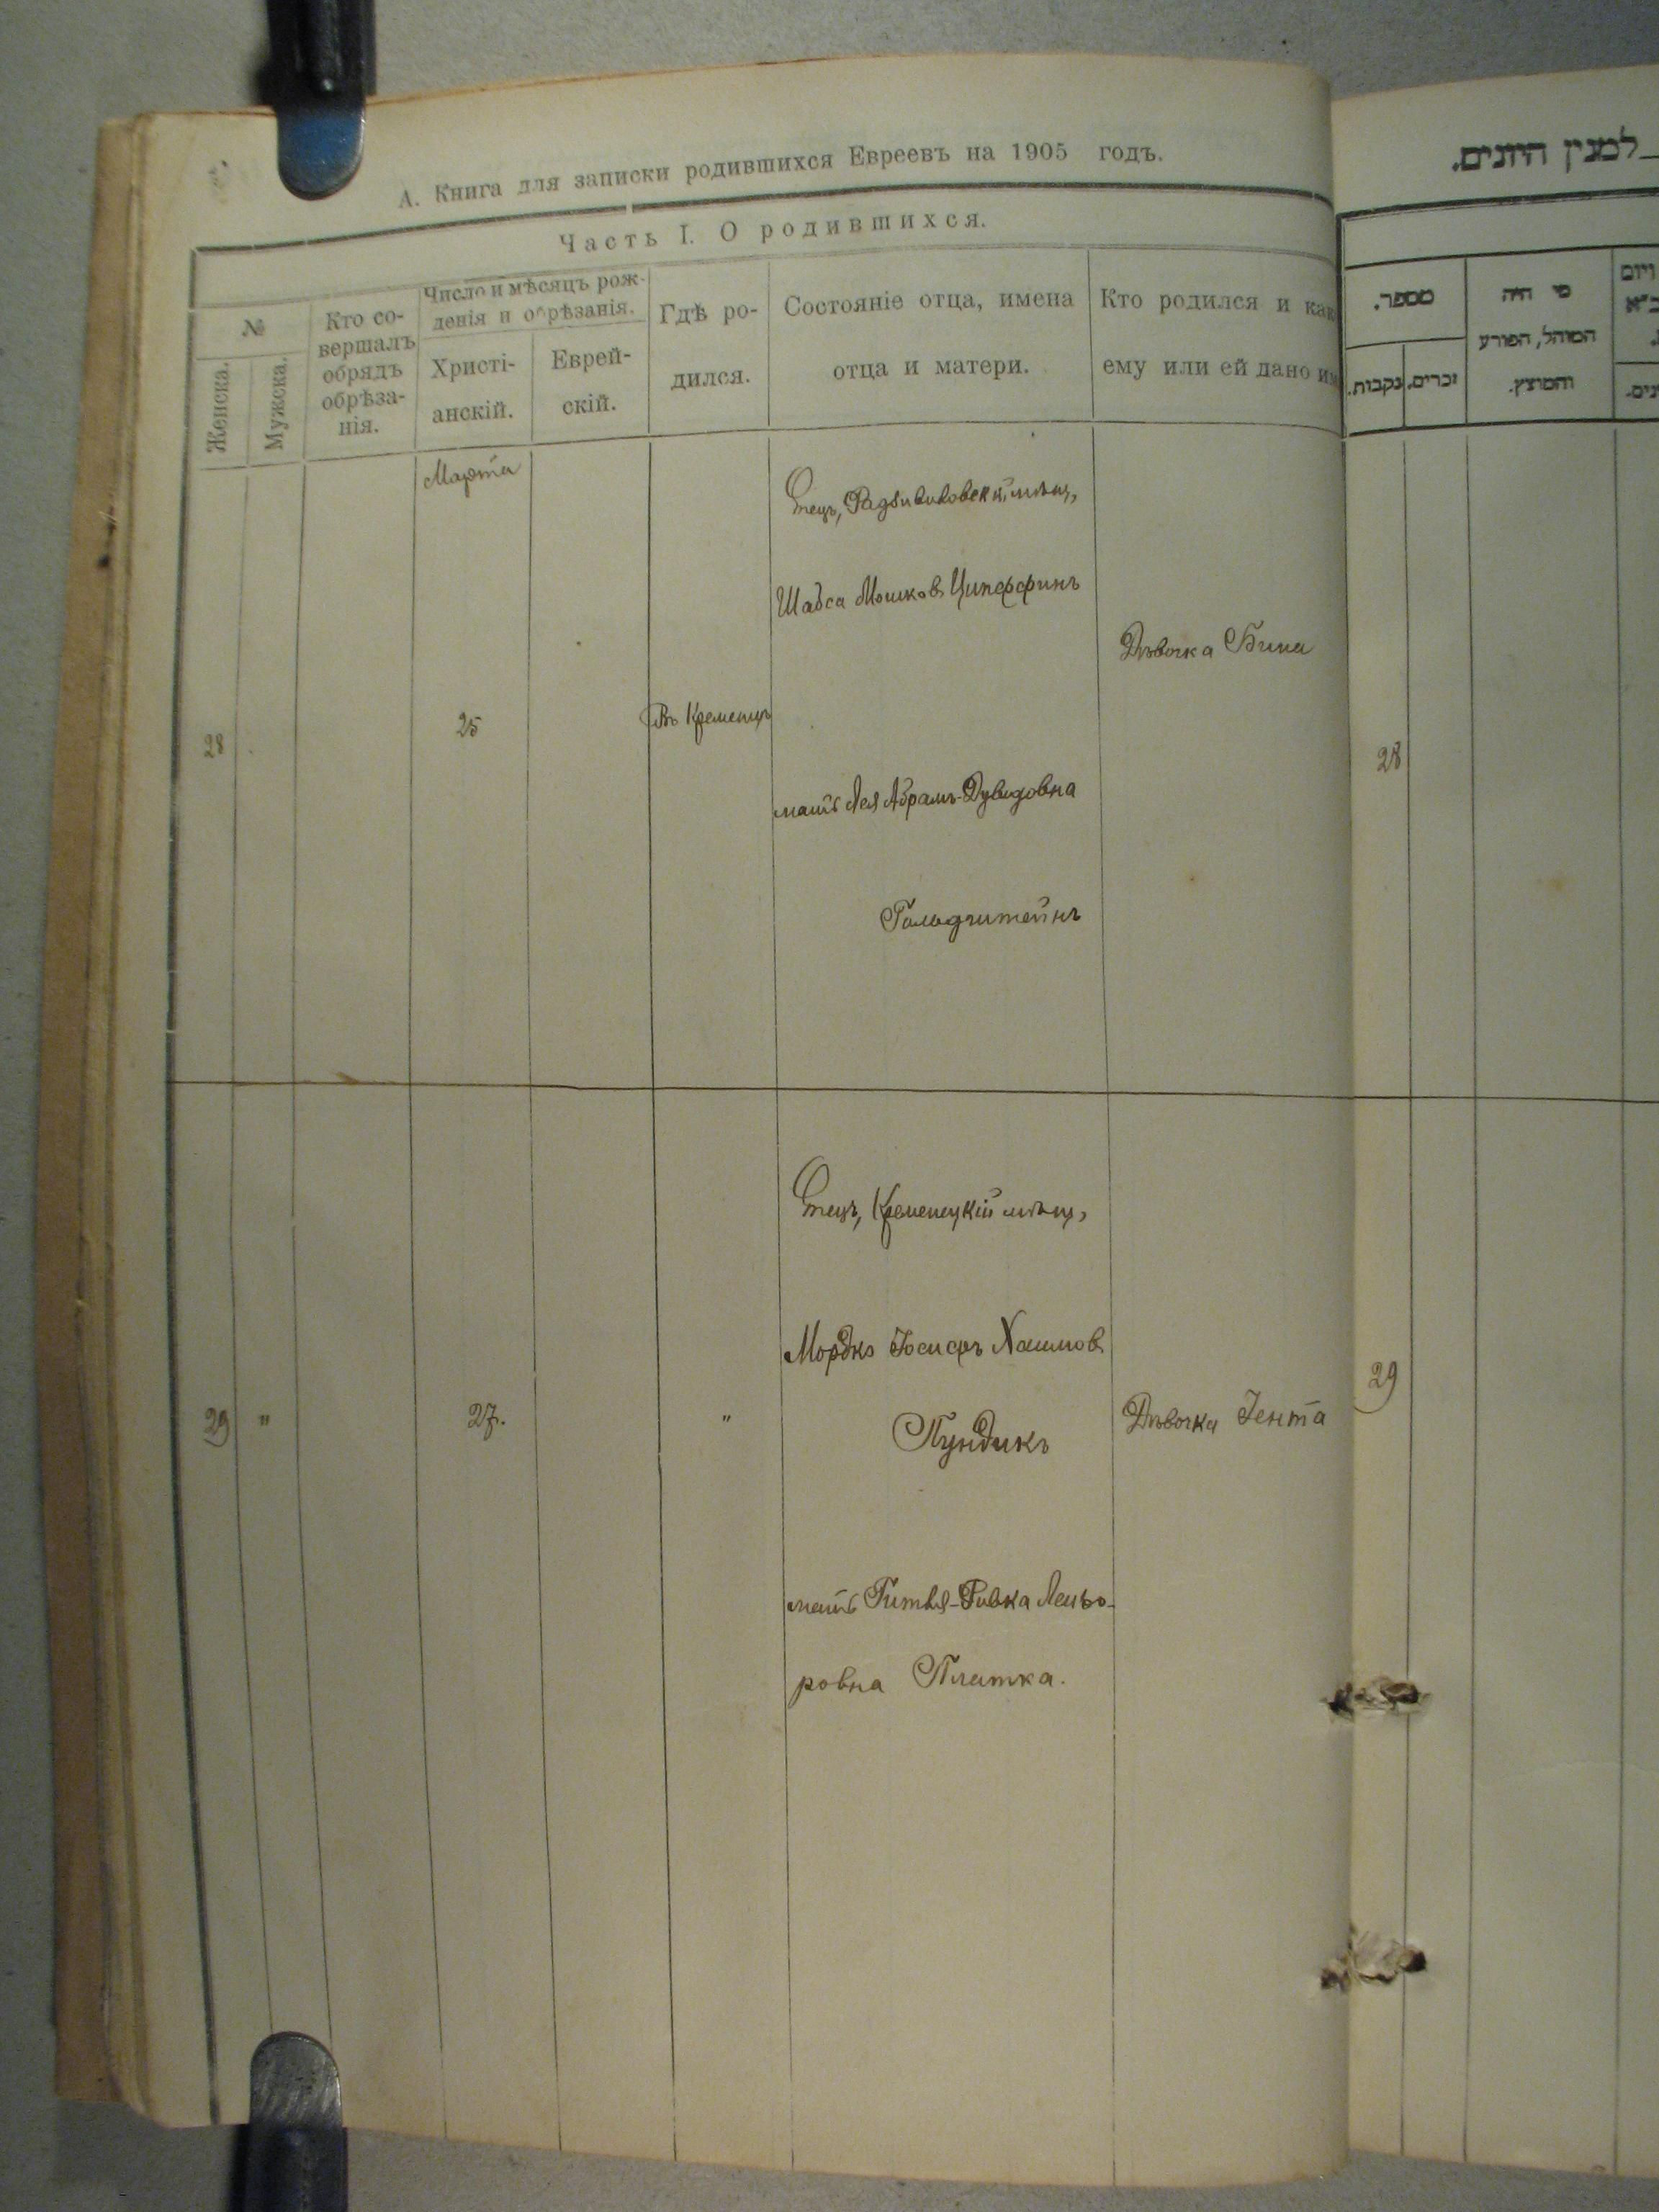 А. Книга для записки родившихся Евреевъ на 1905 годъ.
Часть I. О родившихся.
№
Женска.
Мужска.
Кто со-
вершалъ
обрядъ
обрѣза-
нія.
Число и мѣсяцъ рож-
денія и обрѣзанія.
Христі-
анскій.
Еврей-
скій.
Гдѣ ро-
дился.
Состояніе отца, имена
отца и матери.
Кто родился и как
ему или ей дано им
Марта
28
25
Въ Кременцѣ
Отецъ, Радзивиловскій мѣщ,
Шабса Мошков Ципффинъ
мать Лея Абрамъ-Дувидовна
Гольдштейнъ
Дѣвочка Бина
29
"
27.
"
Отецъ, Кременецкій мѣщ,
Мордко Іосифъ Хаимов
Пундикъ
мать Гитля-Ривка Лейзо-
ровна Платка.
Дѣвочка Іента
למנין היונים.
מספר.
נקבות.
זכרים.
מי היה
המוהל, הפורע
והמוצץ.
ויום
28
29